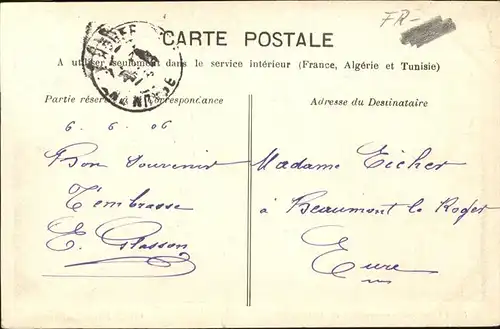 FR-
CARTE POSTALE
A utiliser seulement dans le service intérieur (France, Algérie et Tunisie)
Partie réservée à la Correspondance
Adresse du Destinataire
6. 6. 06
Bon Souvenir
T'embrasse
E. Glasson
Madame Eicher
à Beaumont le Roger
Eure